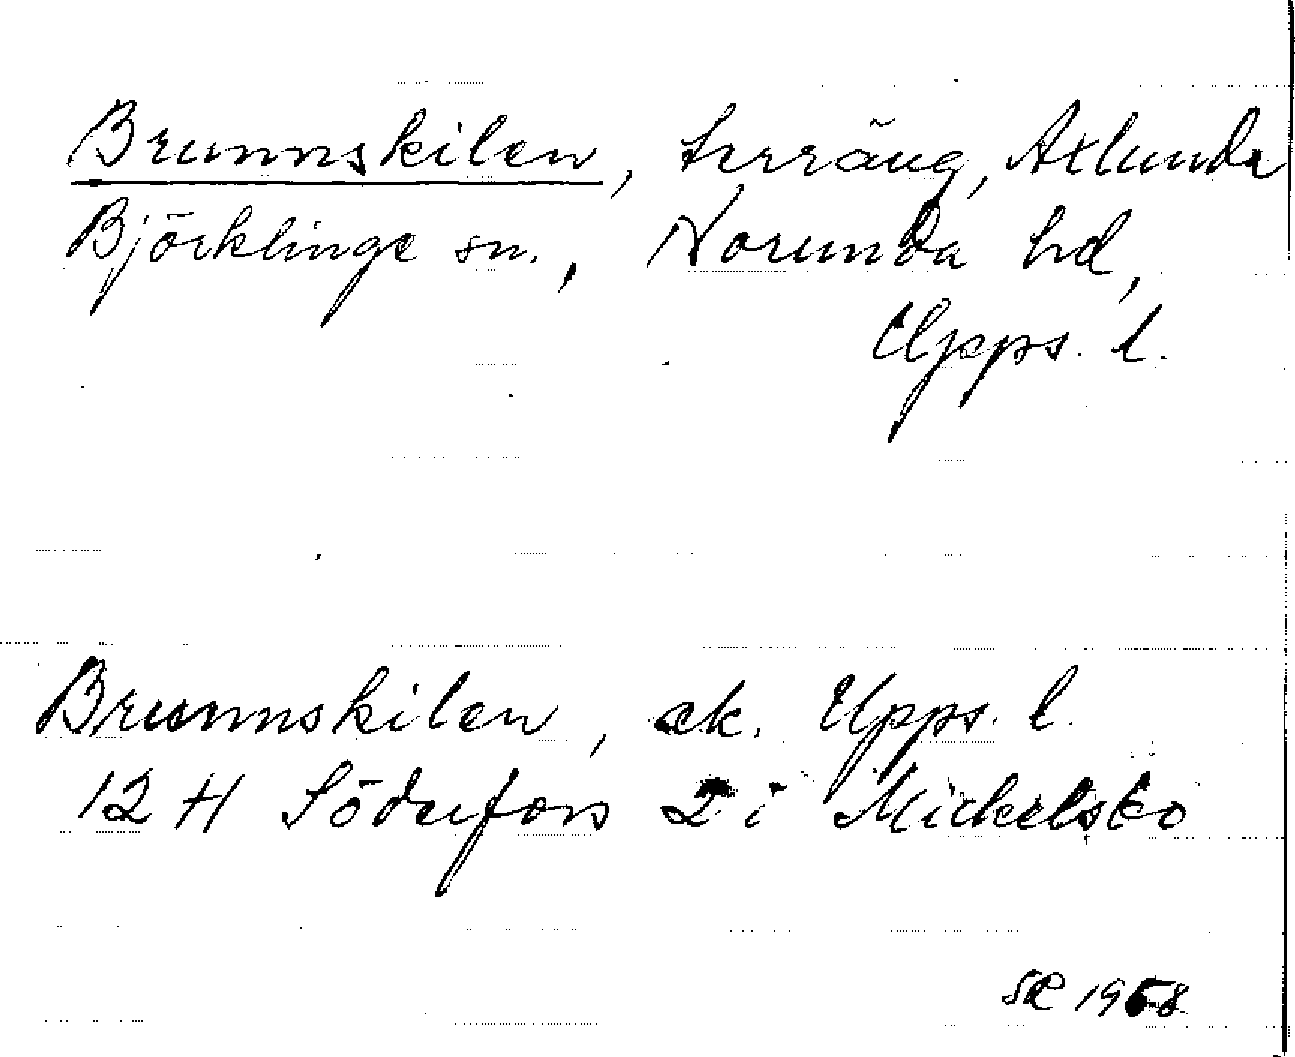 Brunnskilen, terräng, Axlunda
Björklinge sn., Norunda hd,
Upps. l.
Brunnskilen, ek. Upps. l.
12 H Söderfors 2 i Mickelsbo